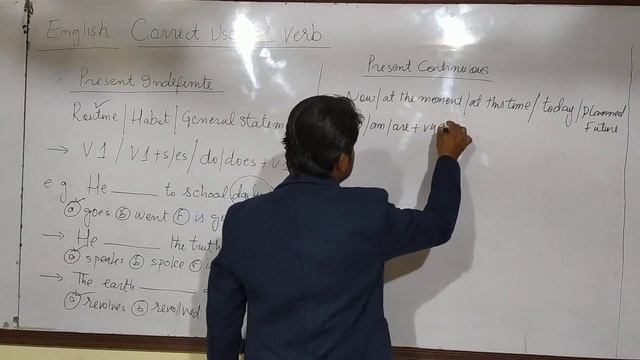 English Correct Use of Verb
Present Indefinite
Routine / Habit / General statem
→ V1 / V1+s/es / do/does + v
e.g He ____ to school daily
(a) goes (b) went (c) is g
→ He ____ the truth
(a) speaks (b) spoke (c)
→ The earth ____
(a) revolves (b) revolved
Present Continuous
Now / at the moment / at this time / today / planned
Future
/am/are + v4